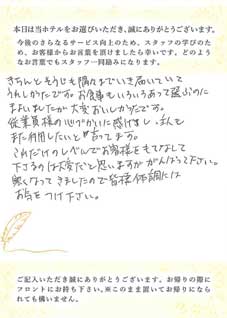 本日は当ホテルをお選びいただき、誠にありがとうございます。
今後のさらなるサービス向上のため、スタッフの学びのため、
お客様からお言葉を頂けましたら幸いです。どのようなお言葉でもスタッフ一同励みになります。
きちんとそうじも隅々までいき届いていて
うれしかったです。お食事もいろいろあって選ぶのに
まよいましたが大変おいしかったです。
従業員様の心づかいに感げきし、私も
また利用したいと思ってます。
これだけのレベルでお客様をもてなして
下さるのは大変だと思いますががんばって下さい。
寒くなってきましたので皆様体調には
お気をつけ下さい。
ご記入いただき誠にありがとうございます。お帰りの際に
フロントにお持ち下さい。※このまま置いてお帰りになら
れても構いません。